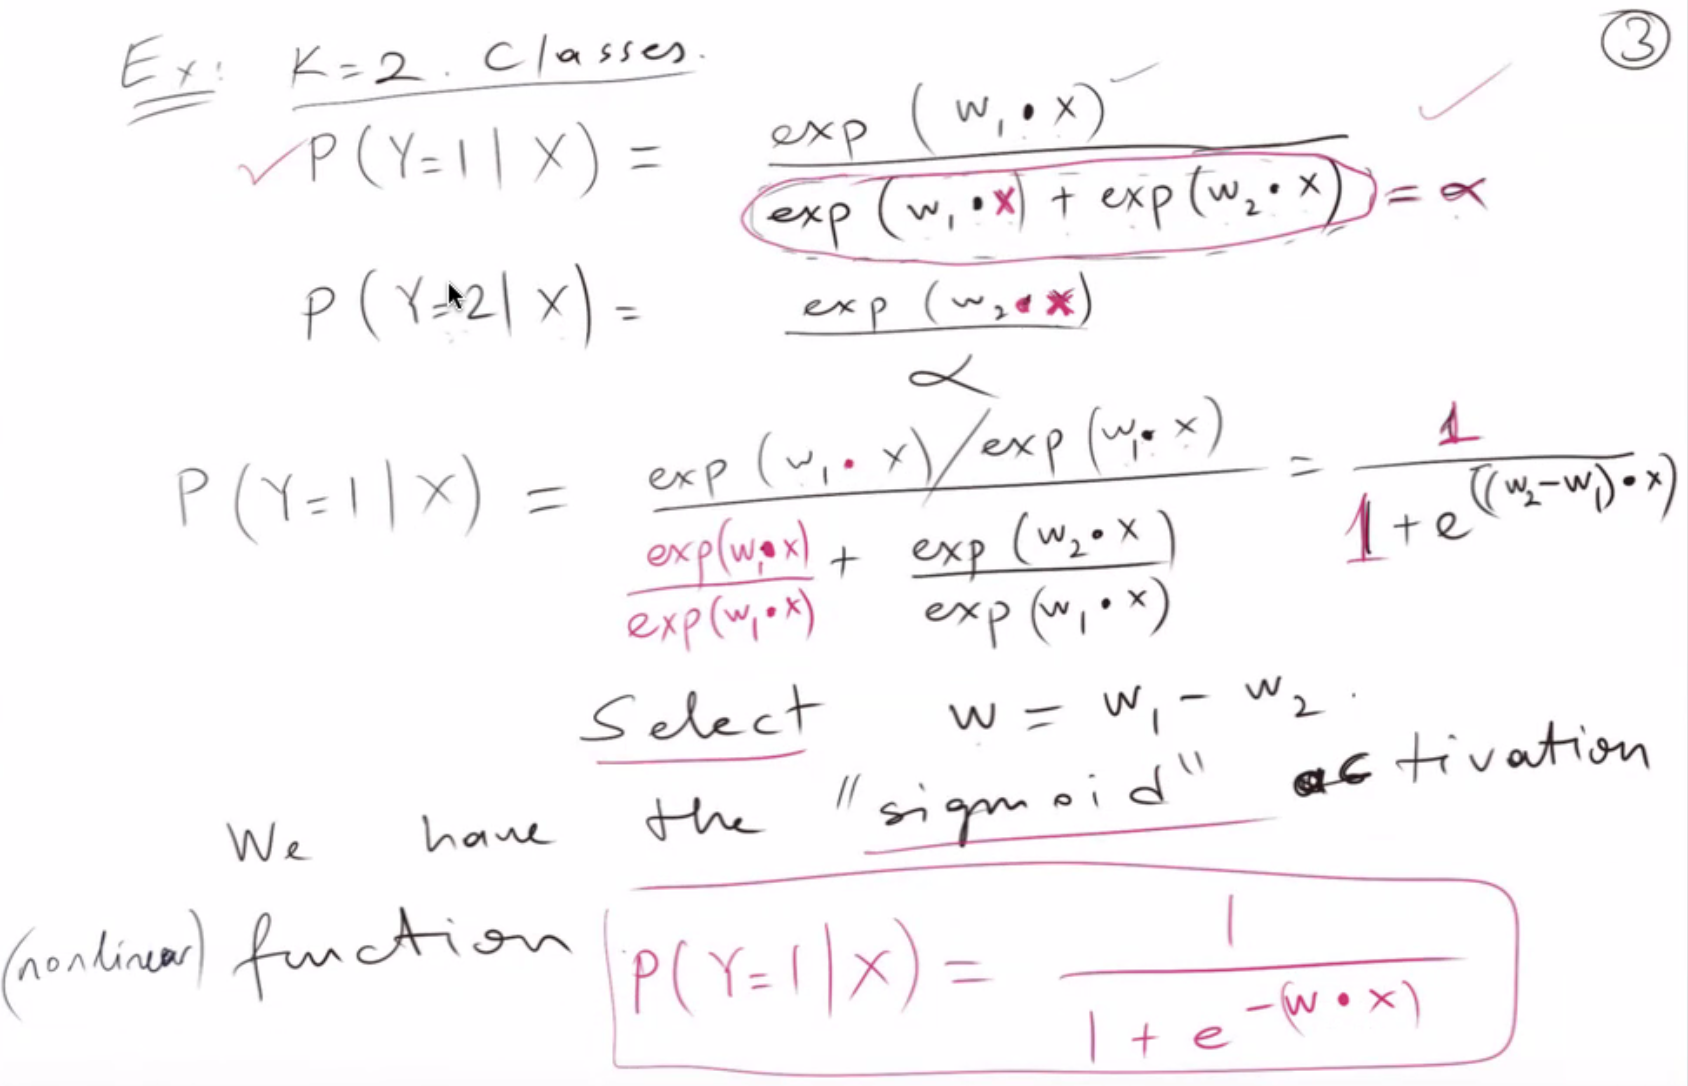 ③
Ex: K=2. Classes.
P(Y=1|X) = exp(w₁•x) / (exp(w₁•x) + exp(w₂•x)) = α
P(Y=2|X) = exp(w₂•x) / α
P(Y=1|X) = (exp(w₁•x)/exp(w₁•x)) / (exp(w₁•x)/exp(w₁•x) + exp(w₂•x)/exp(w₁•x)) = 1 / (1+e^((w₂-w₁)•x))
Select w = w₁ - w₂.
We have the "sigmoid" activation
(nonlinear) function P(Y=1|X) = 1 / (1+e^-(w•x))